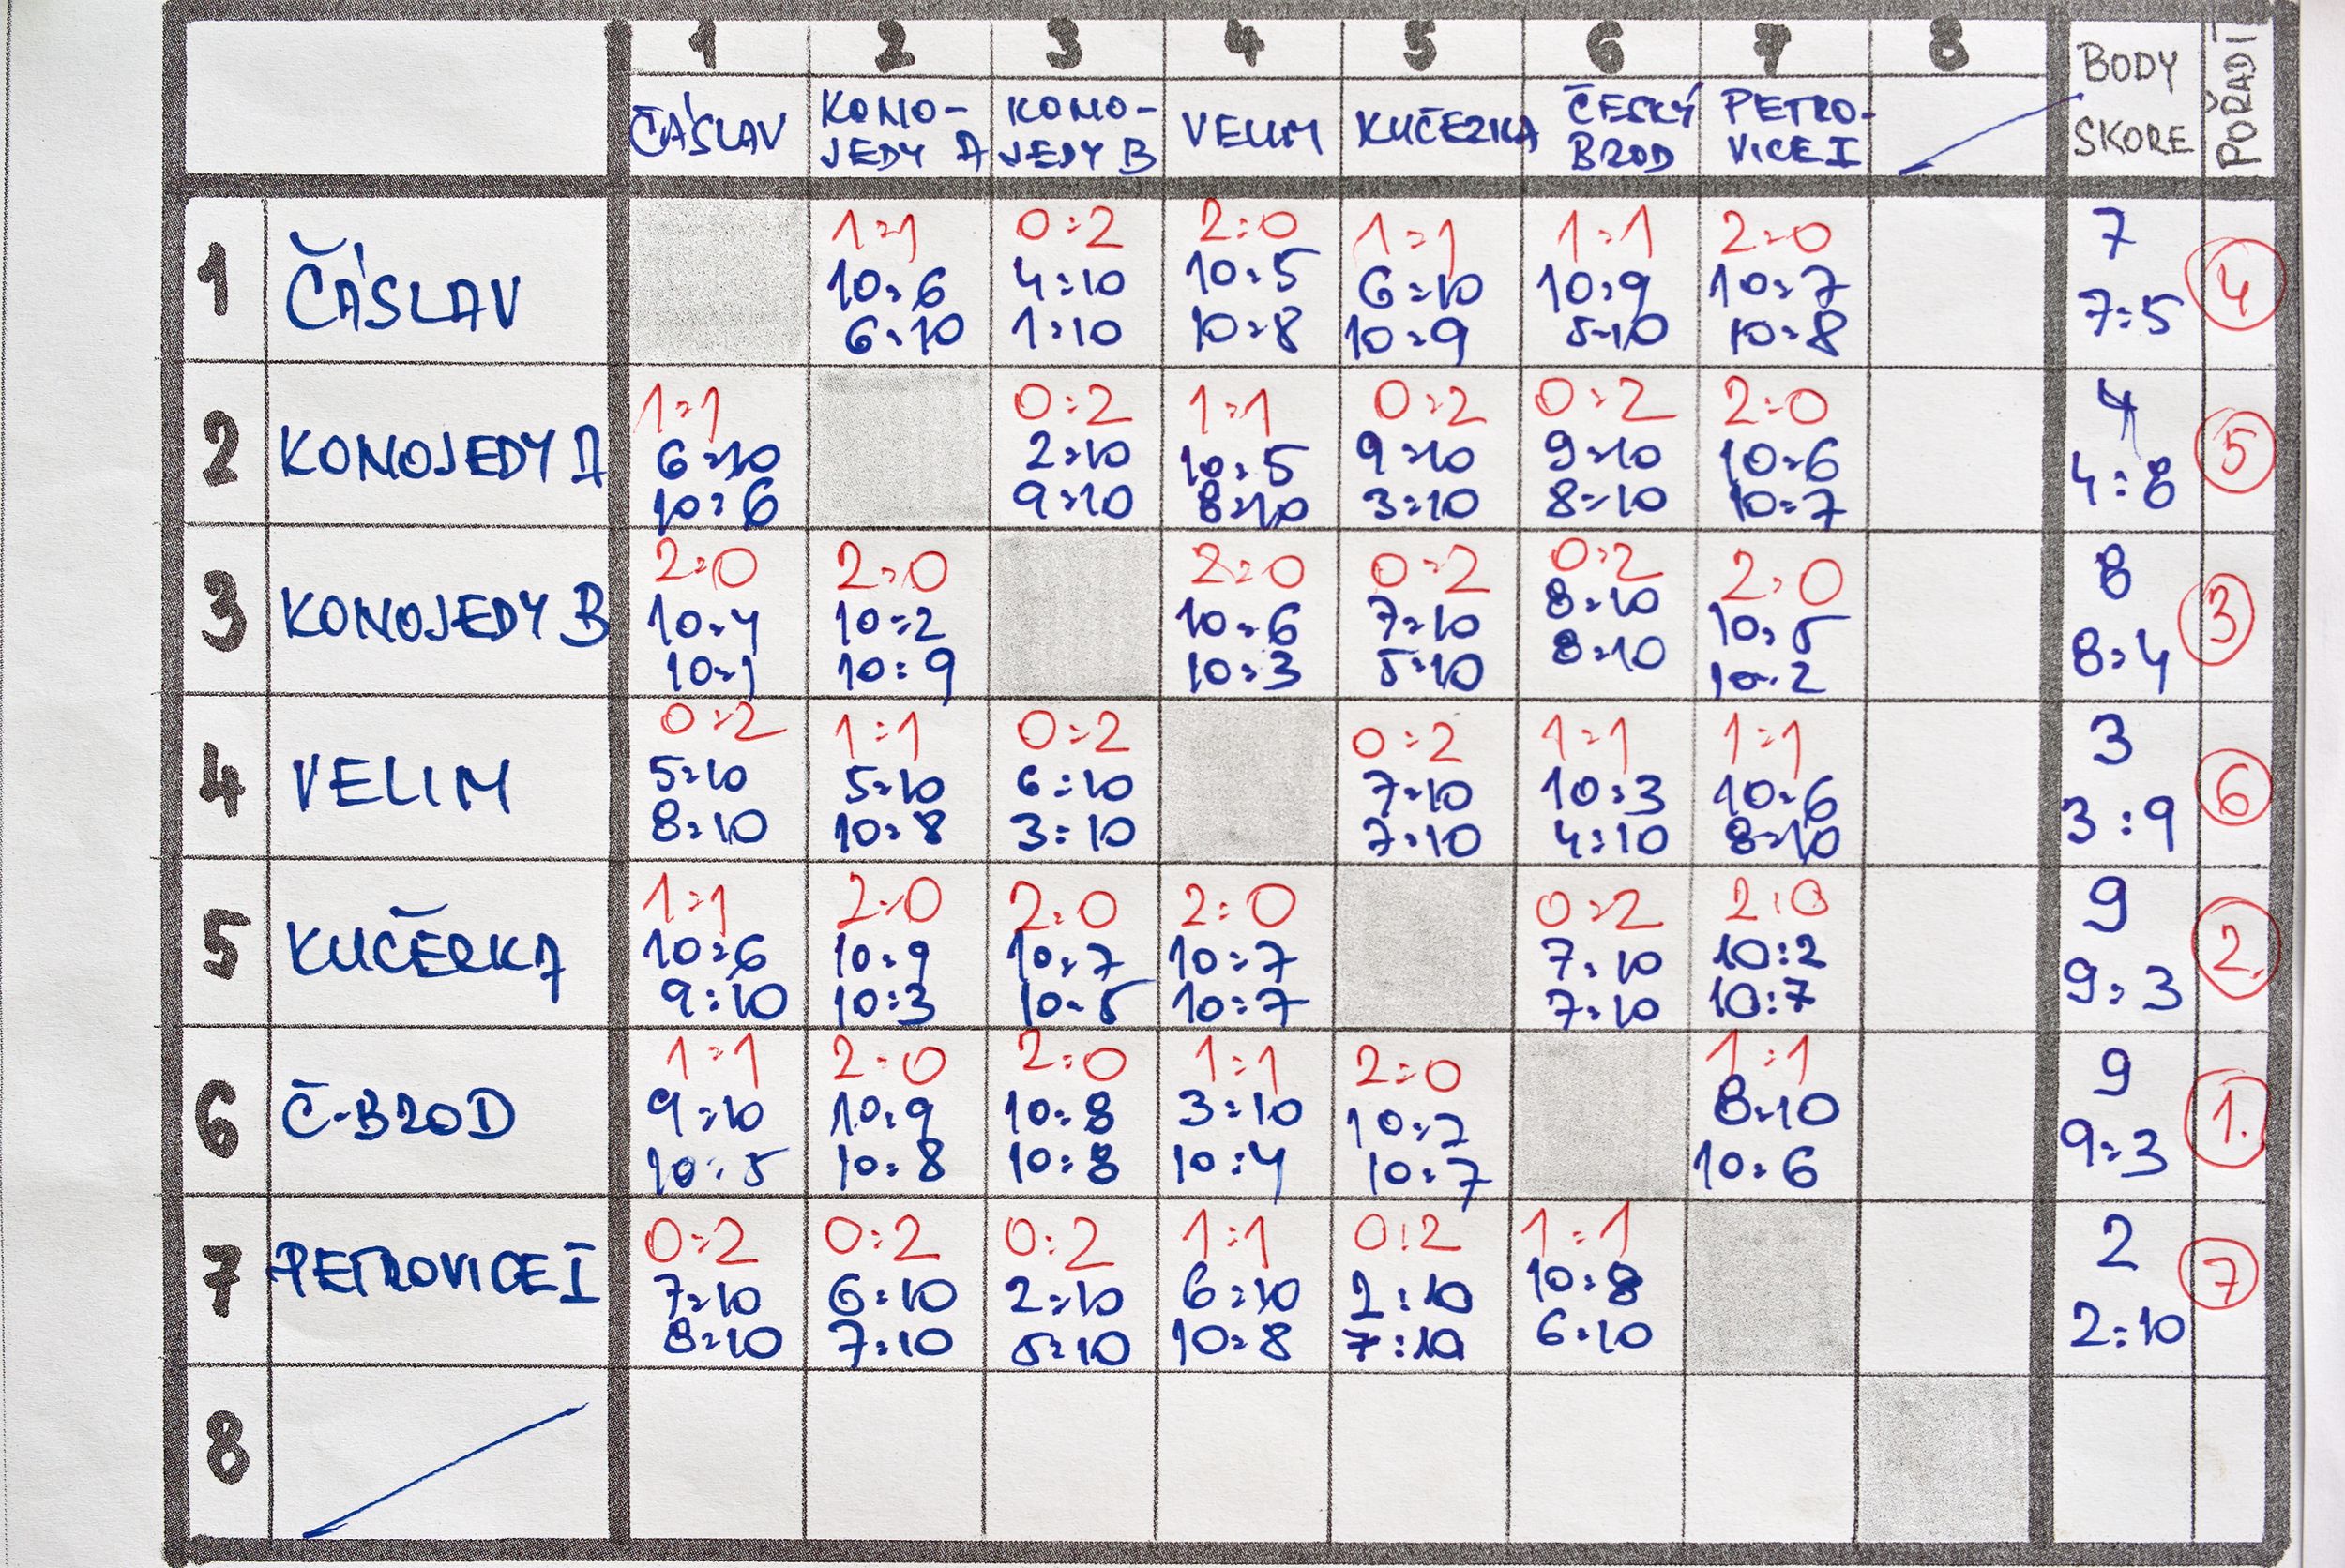 1 2 3 4 5 6 7 8 BODY SKORE POŘADÍ
ČÁSLAV KONO-JEDY A KONO-JEDY B VELIM KUČERKA ČESKÝ BROD PETRO-VICE I
1 ČÁSLAV 1:1 0:2 2:0 1:1 1:1 2:0 7 4
10:6 4:10 10:5 6:10 10:9 10:7 7:5
6:10 1:10 10:8 10:9 5:10 10:8
2 KONOJEDY A 1:1 0:2 1:1 0:2 0:2 2:0 4 5
6:10 2:10 10:5 9:10 9:10 10:6 4:8
10:6 9:10 8:10 3:10 8:10 10:7
3 KONOJEDY B 2:0 2:0 2:0 0:2 0:2 2:0 8 3
10:4 10:2 10:6 7:10 8:10 10:5 8:4
10:1 10:9 10:3 5:10 8:10 10:2
4 VELIM 0:2 1:1 0:2 0:2 1:1 1:1 3 6
5:10 5:10 6:10 7:10 10:3 10:6 3:9
8:10 10:8 3:10 7:10 4:10 8:10
5 KUČERKA 1:1 2:0 2:0 2:0 0:2 2:0 9 2.
10:6 10:9 10:7 10:7 7:10 10:2 9:3
9:10 10:3 10:5 10:7 7:10 10:7
6 Č-BROD 1:1 2:0 2:0 1:1 2:0 1:1 9 1.
9:10 10:9 10:8 3:10 10:7 8:10 9:3
10:5 10:8 10:8 10:4 10:7 10:6
7 PETROVICE I 0:2 0:2 0:2 1:1 0:2 1:1 2 7
7:10 6:10 2:10 6:10 2:10 10:8 2:10
8:10 7:10 5:10 10:8 7:10 6:10
8